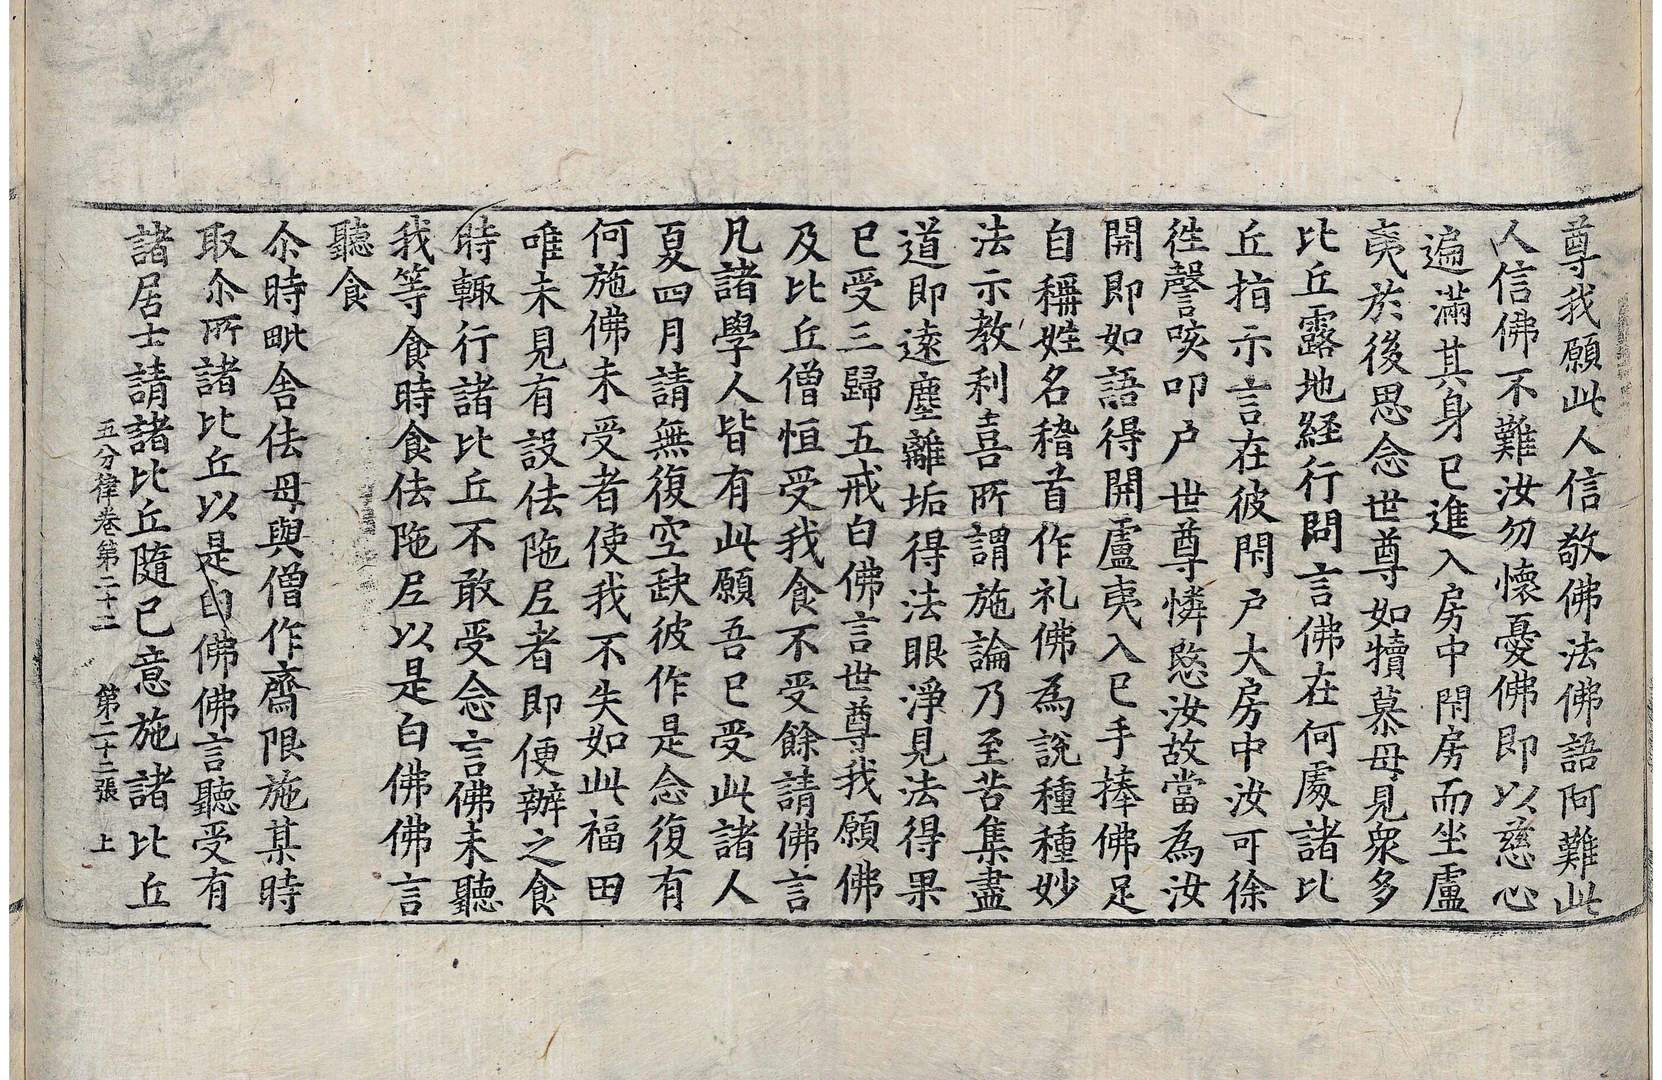 尊我願此人信敬佛法佛語阿難此
人信佛不難汝勿懷憂佛即以慈心
遍滿其身已進入房中閇房而坐盧
夷於後思念世尊如犢慕母見衆多
比丘露地経行問言佛在何處諸比
丘指示言在彼閇户大房中汝可徐
徃謦咳叩户世尊憐愍汝故當為汝
開即如語得開盧夷入已手捧佛足
自稱姓名稽首作礼佛為說種種妙
法示教利喜所謂施論乃至苦集盡
道即遠塵離垢得法眼淨見法得果
已受三歸五戒白佛言世尊我願佛
及比丘僧恒受我食不受餘請佛言
凡諸學人皆有此願吾已受此諸人
夏四月請無復空缺彼作是念復有
何施佛未受者使我不失如此福田
唯未見有設佉陁尼者即便辦之食
時輙行諸比丘不敢受念言佛未聽
我等食時食佉陁尼以是白佛佛言
聽食
尒時毗舎佉母與僧作齋限施某時
取尒所諸比丘以是白佛佛言聽受有
諸居士請諸比丘隨已意施諸比丘
五分律卷第二十二 第二十二張 上